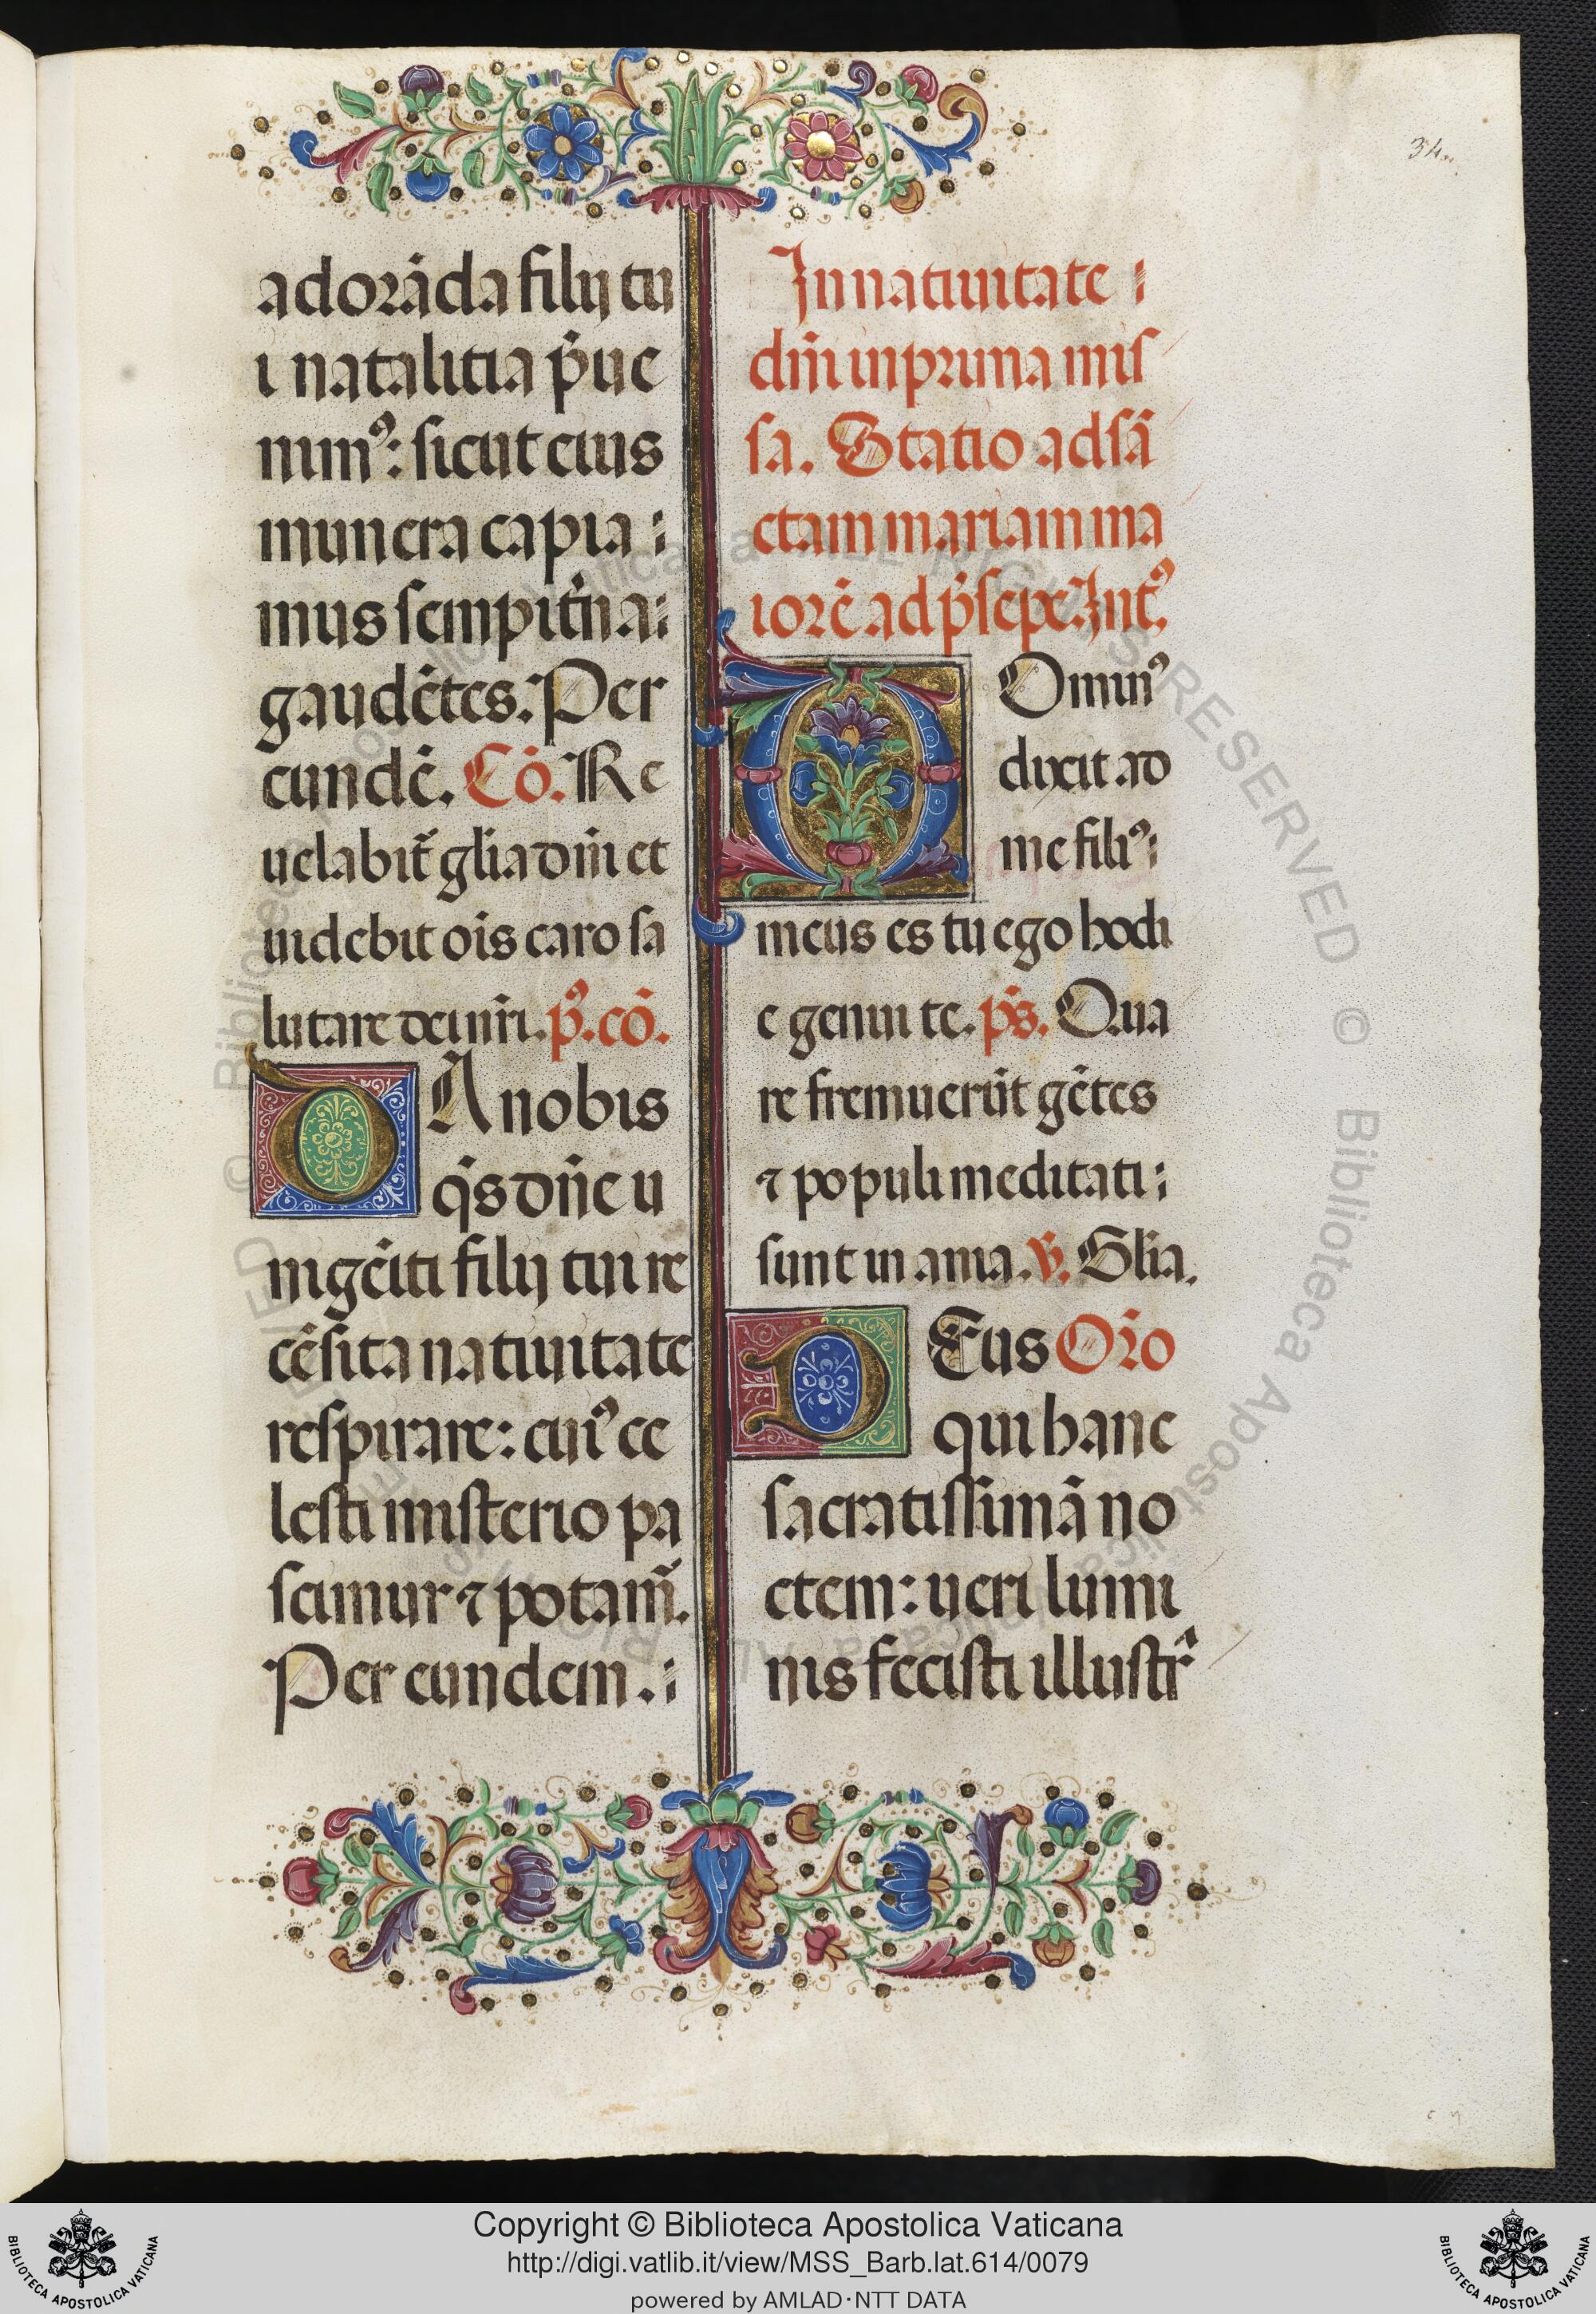 34
adorāda filij tu
i natalitia p̄ue
nimꝰ: sicut eius
munera capia
mus sempit̄na
gaudētes. Per
eundē. Cō. Re
uelabit̄ gl̄ia dn̄i et
uidebit oīs caro sa
lutare dei nr̄i. p̄. cō.
DA nobis
qs̄ dn̄e u
nigēiti filij tui re
cēsita natiuitate
respirare: cuiꝰ ce
lesti misterio pa
scimur ⁊ potam̄.
Per eundem.
In natiuitate
dn̄i in prima mis
sa. Statio ad sā
ctam mariam ma
iorē ad p̄sepe. Int̄.
DOminꝰ
dixit ad
me filiꝰ
meus es tu ego hodi
e genui te. p̄s. Qua
re fremuerūt gētes
⁊ populi meditati
sunt inania. v̄. Gl̄ia.
DEus Or̄o
qui hanc
sacratissimā no
ctem: ueri lumi
nis fecisti illustr̄
Copyright © Biblioteca Apostolica Vaticana
http://digi.vatlib.it/view/MSS_Barb.lat.614/0079
powered by AMLAD·NTT DATA
BIBLIOTECA APOSTOLICA VATICANA
BIBLIOTECA APOSTOLICA VATICANA